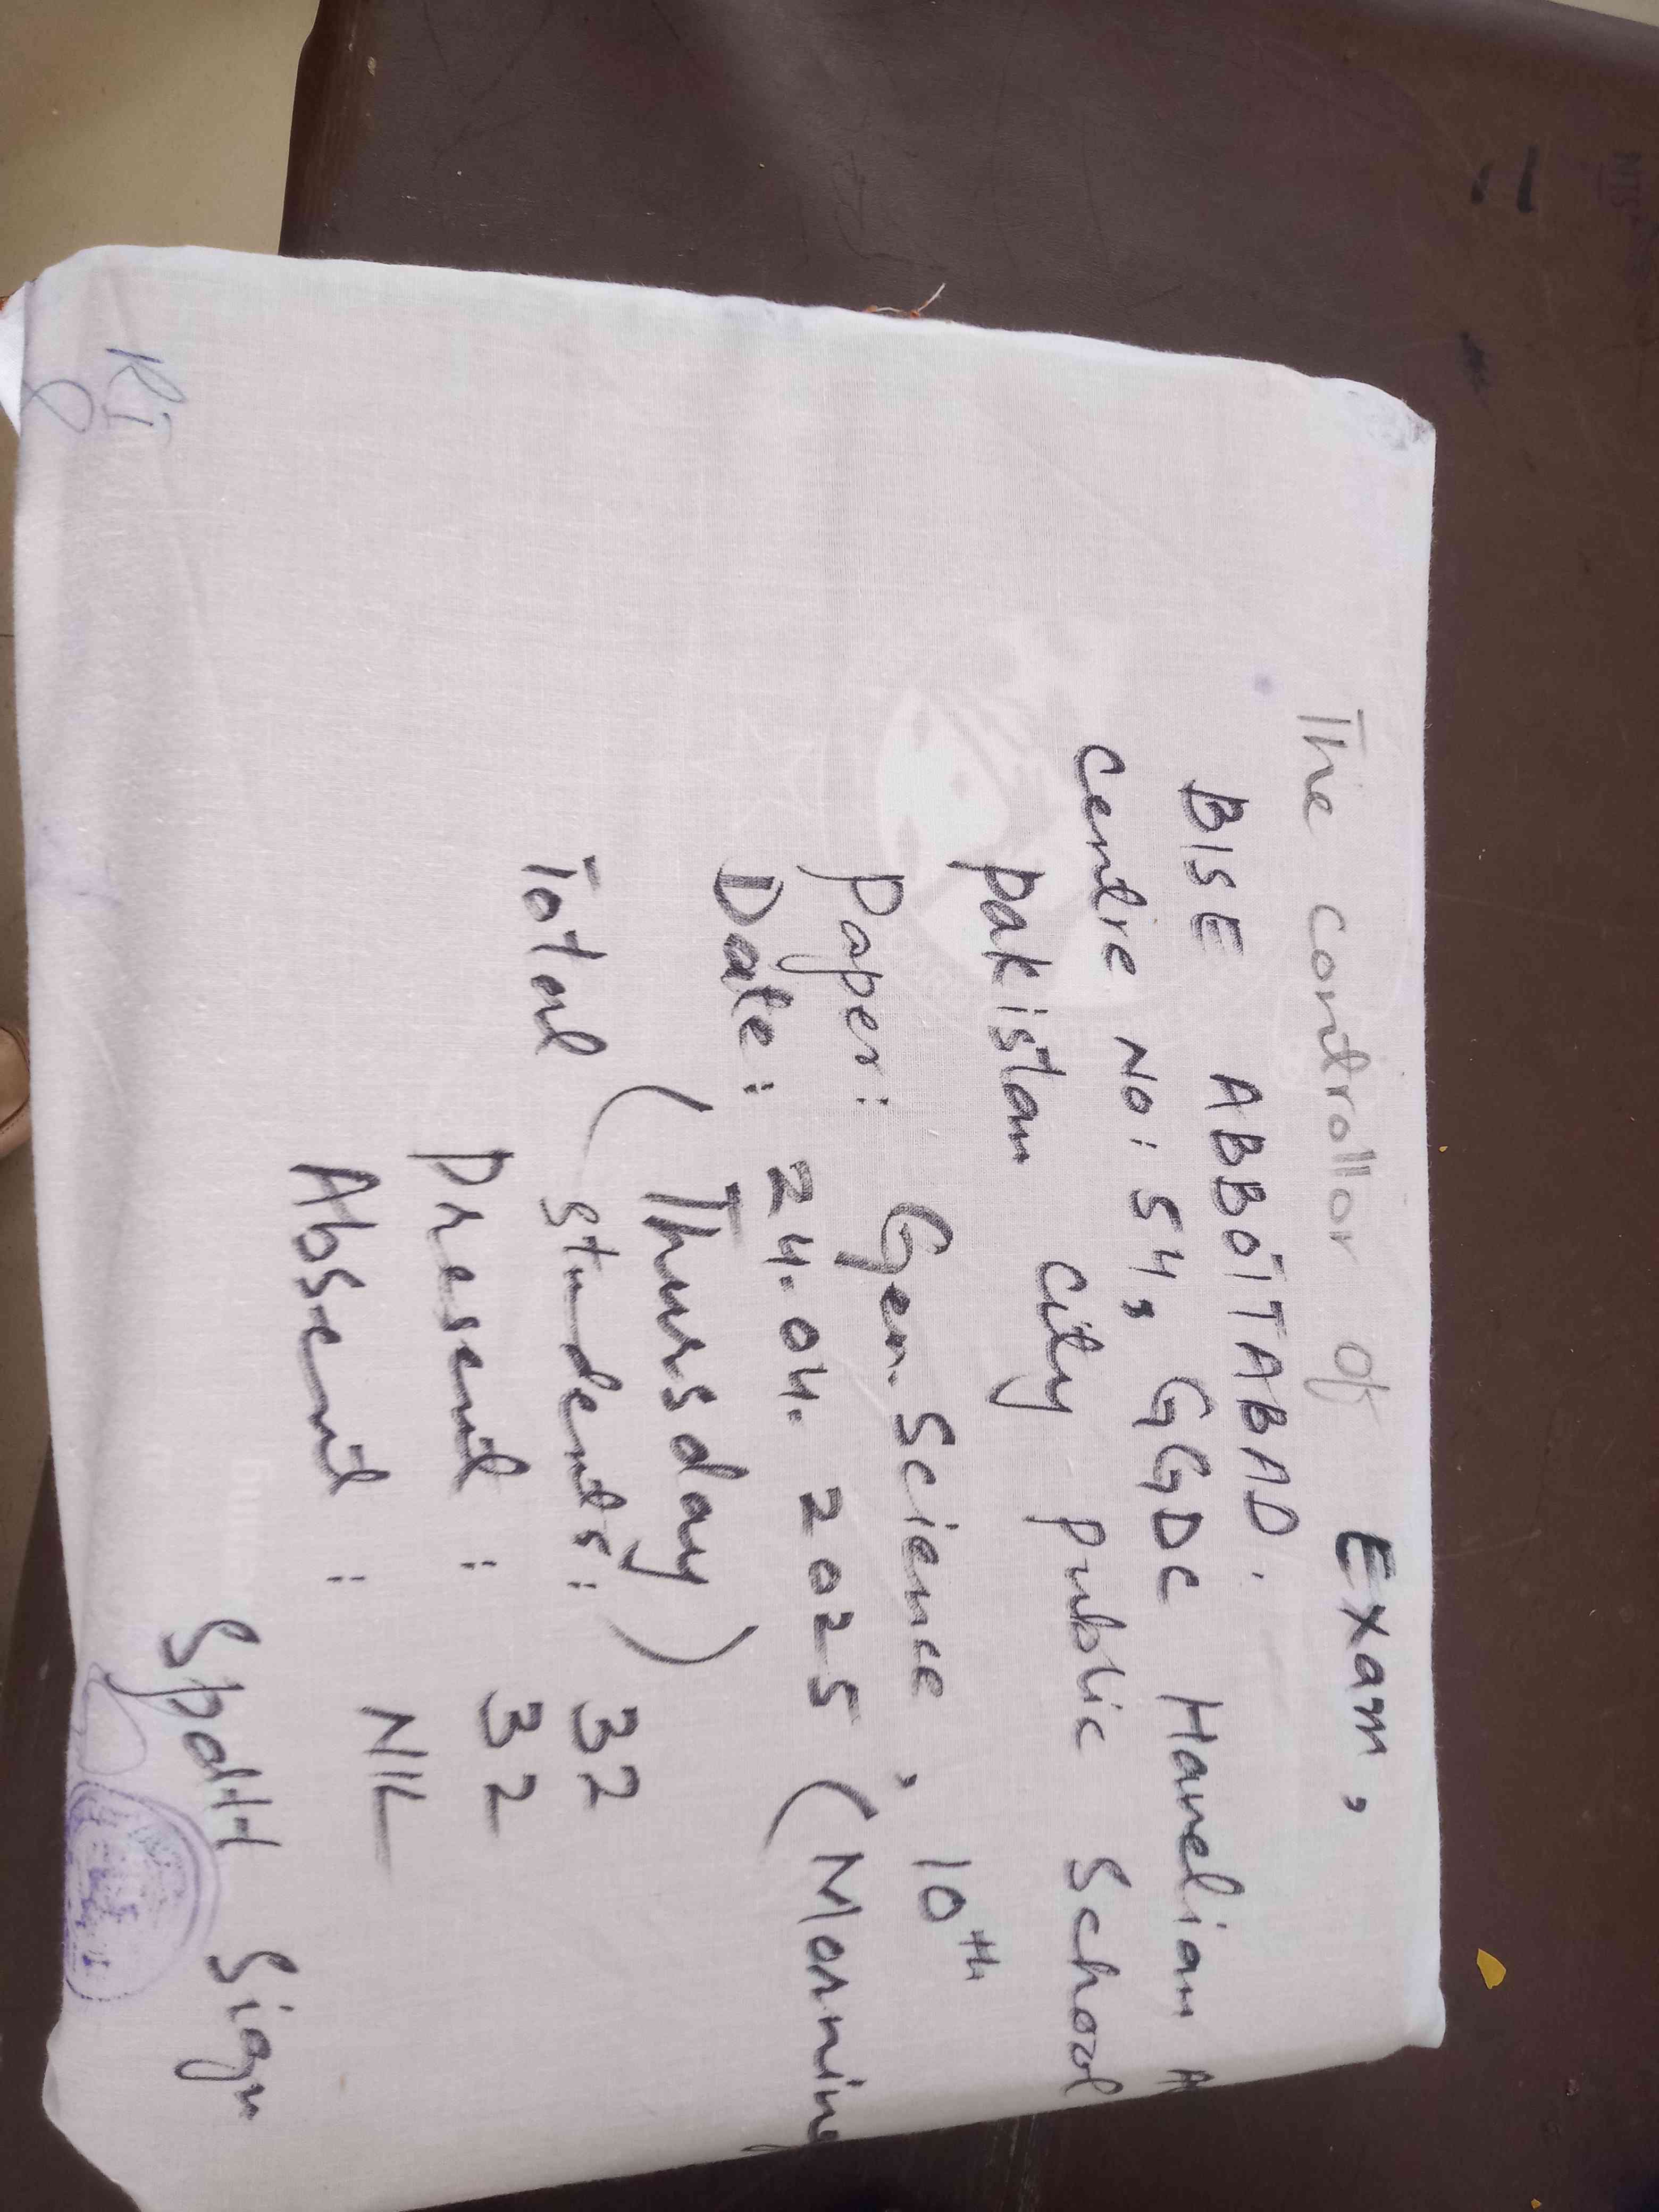 The Controllor of Exam,
BISE ABBOTTABAD.
Centre No: 54, GGDC Havelian A
Pakistan City Public School
Paper: Gen. Science, 10th
Date: 24.04.2025 (Morning
(Thursday)
Total students: 32
Present: 32
Absent: NIL
Spdtt Sign